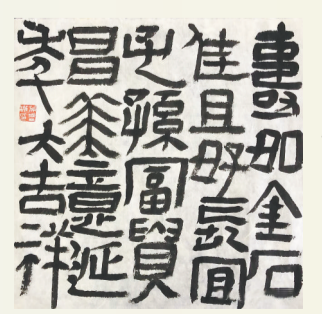 壽如金石
佳且好長宜
子孫富貴
昌意延
大吉祥